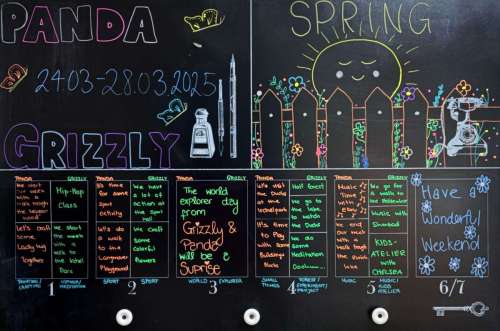 PANDA
24.03-28.03.2025
GRIZZLY
SPRING
PANDA
We start
the week
with a
walk through
the
wood
Let's craft
some
Lady bug
Together
GRIZZLY
Hip-Hop
Class
We start
the week
with a
walk to
the local
Park
PANDA
It's time
for some
sport
activity
Let's do
a walk
to the
Playground
GRIZZLY
We have
a lot
of action
at the
sport
hall
We craft
some
colorful
flowers
The world
explorer day
from
Grizzly &
Panda
will be
a
Suprise
PANDA
Let's visit
the Ducks
at the
It's time
to Play
with some
Buildings
Blocks
GRIZZLY
Half forest
We go to
the lake
to watch
the Ducks
We do
some
Meditation
PANDA
Music
Time
with
We end
our week
with a
walk through
the
lake
GRIZZLY
We go for
a walk
to the
Music with
KIDS-
ATELIER
with
CHELSEA
Have a
Wonderful
Weekend
PAINTING/
CRAFTING
1
HIPHOP/
MEDITATION
SPORT
2
SPORT
WORLD
3
EXPLORER
SMALL
THINGS
4
FOREST/
EXPERIMENT/
PROJECT
MUSIC
5
MUSIC/
KIDS
ATELIER
6/7